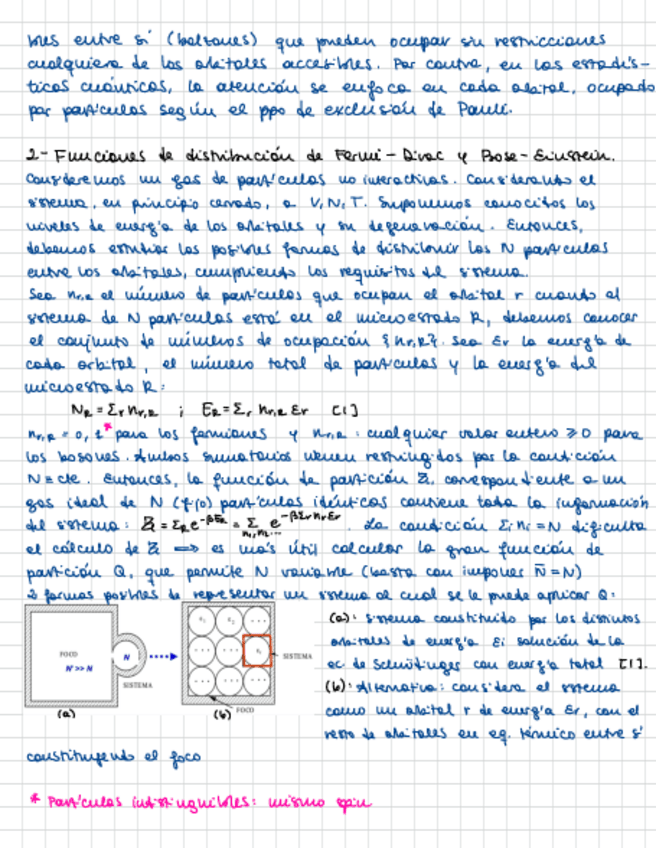 bles entre sí (boltzones) que pueden ocupar sin restricciones
cualquiera de los orbitales accesibles. Por contra, en las estadís-
ticas cuánticas, la atención se enfoca en cada orbital, ocupado
por partículas según el ppo de exclusión de Pauli.
2- Funciones de distribución de Fermi-Dirac y Bose-Einstein.
Consideremos un gas de partículas no interactivas. Considerando el
sistema, en principio cerrado, a V, N, T. Suponemos conocidos los
niveles de energía de los orbitales y su degeneración. Entonces,
debemos estudiar las posibles formas de distribuir las N partículas
entre los orbitales, cumpliendo los requisitos del sistema.
Sea nr,R el número de partículas que ocupan el orbital r cuando el
sistema de N partículas está en el microestado R, debemos conocer
el conjunto de números de ocupación {nr,R}. Sea Er la energía de
cada orbital, el número total de partículas y la energía del
microestado R:
NR = Σr nr,R ; ER = Σr nr,R εr [1]
nr,R = 0, 1* para los fermiones y nr,R: cualquier valor entero ≥ 0 para
los bosones. Ambos sumatorios vienen restringidos por la condición
N = cte. Entonces, la función de partición Z, correspondiente a un
gas ideal de N (fijo) partículas idénticas contiene toda la información
del sistema: Z = ΣR e^-βER = Σ n1,n2... e^-βΣr nr εr. La condición Σi ni = N dificulta
el cálculo de Z ⟹ es más útil calcular la gran función de
partición Q, que permite N variable (basta con imponer N̄ = N)
2 formas posibles de representar un sistema al cual se le puede aplicar Q:
FOCO
N' >> N
N
SISTEMA
(a)
ε1 ε2 ...
... ... εr
... ... ...
SISTEMA
FOCO
(b)
(a): sistema constituido por los distintos
orbitales de energía Ei solución de la
ec de Schrödinger con energía total [1].
(b): Alternativa: considera el sistema
como un orbital r de energía Er, con el
resto de orbitales en eq. térmico entre sí
constituyendo el foco
* Partículas indistinguibles: mismo spin